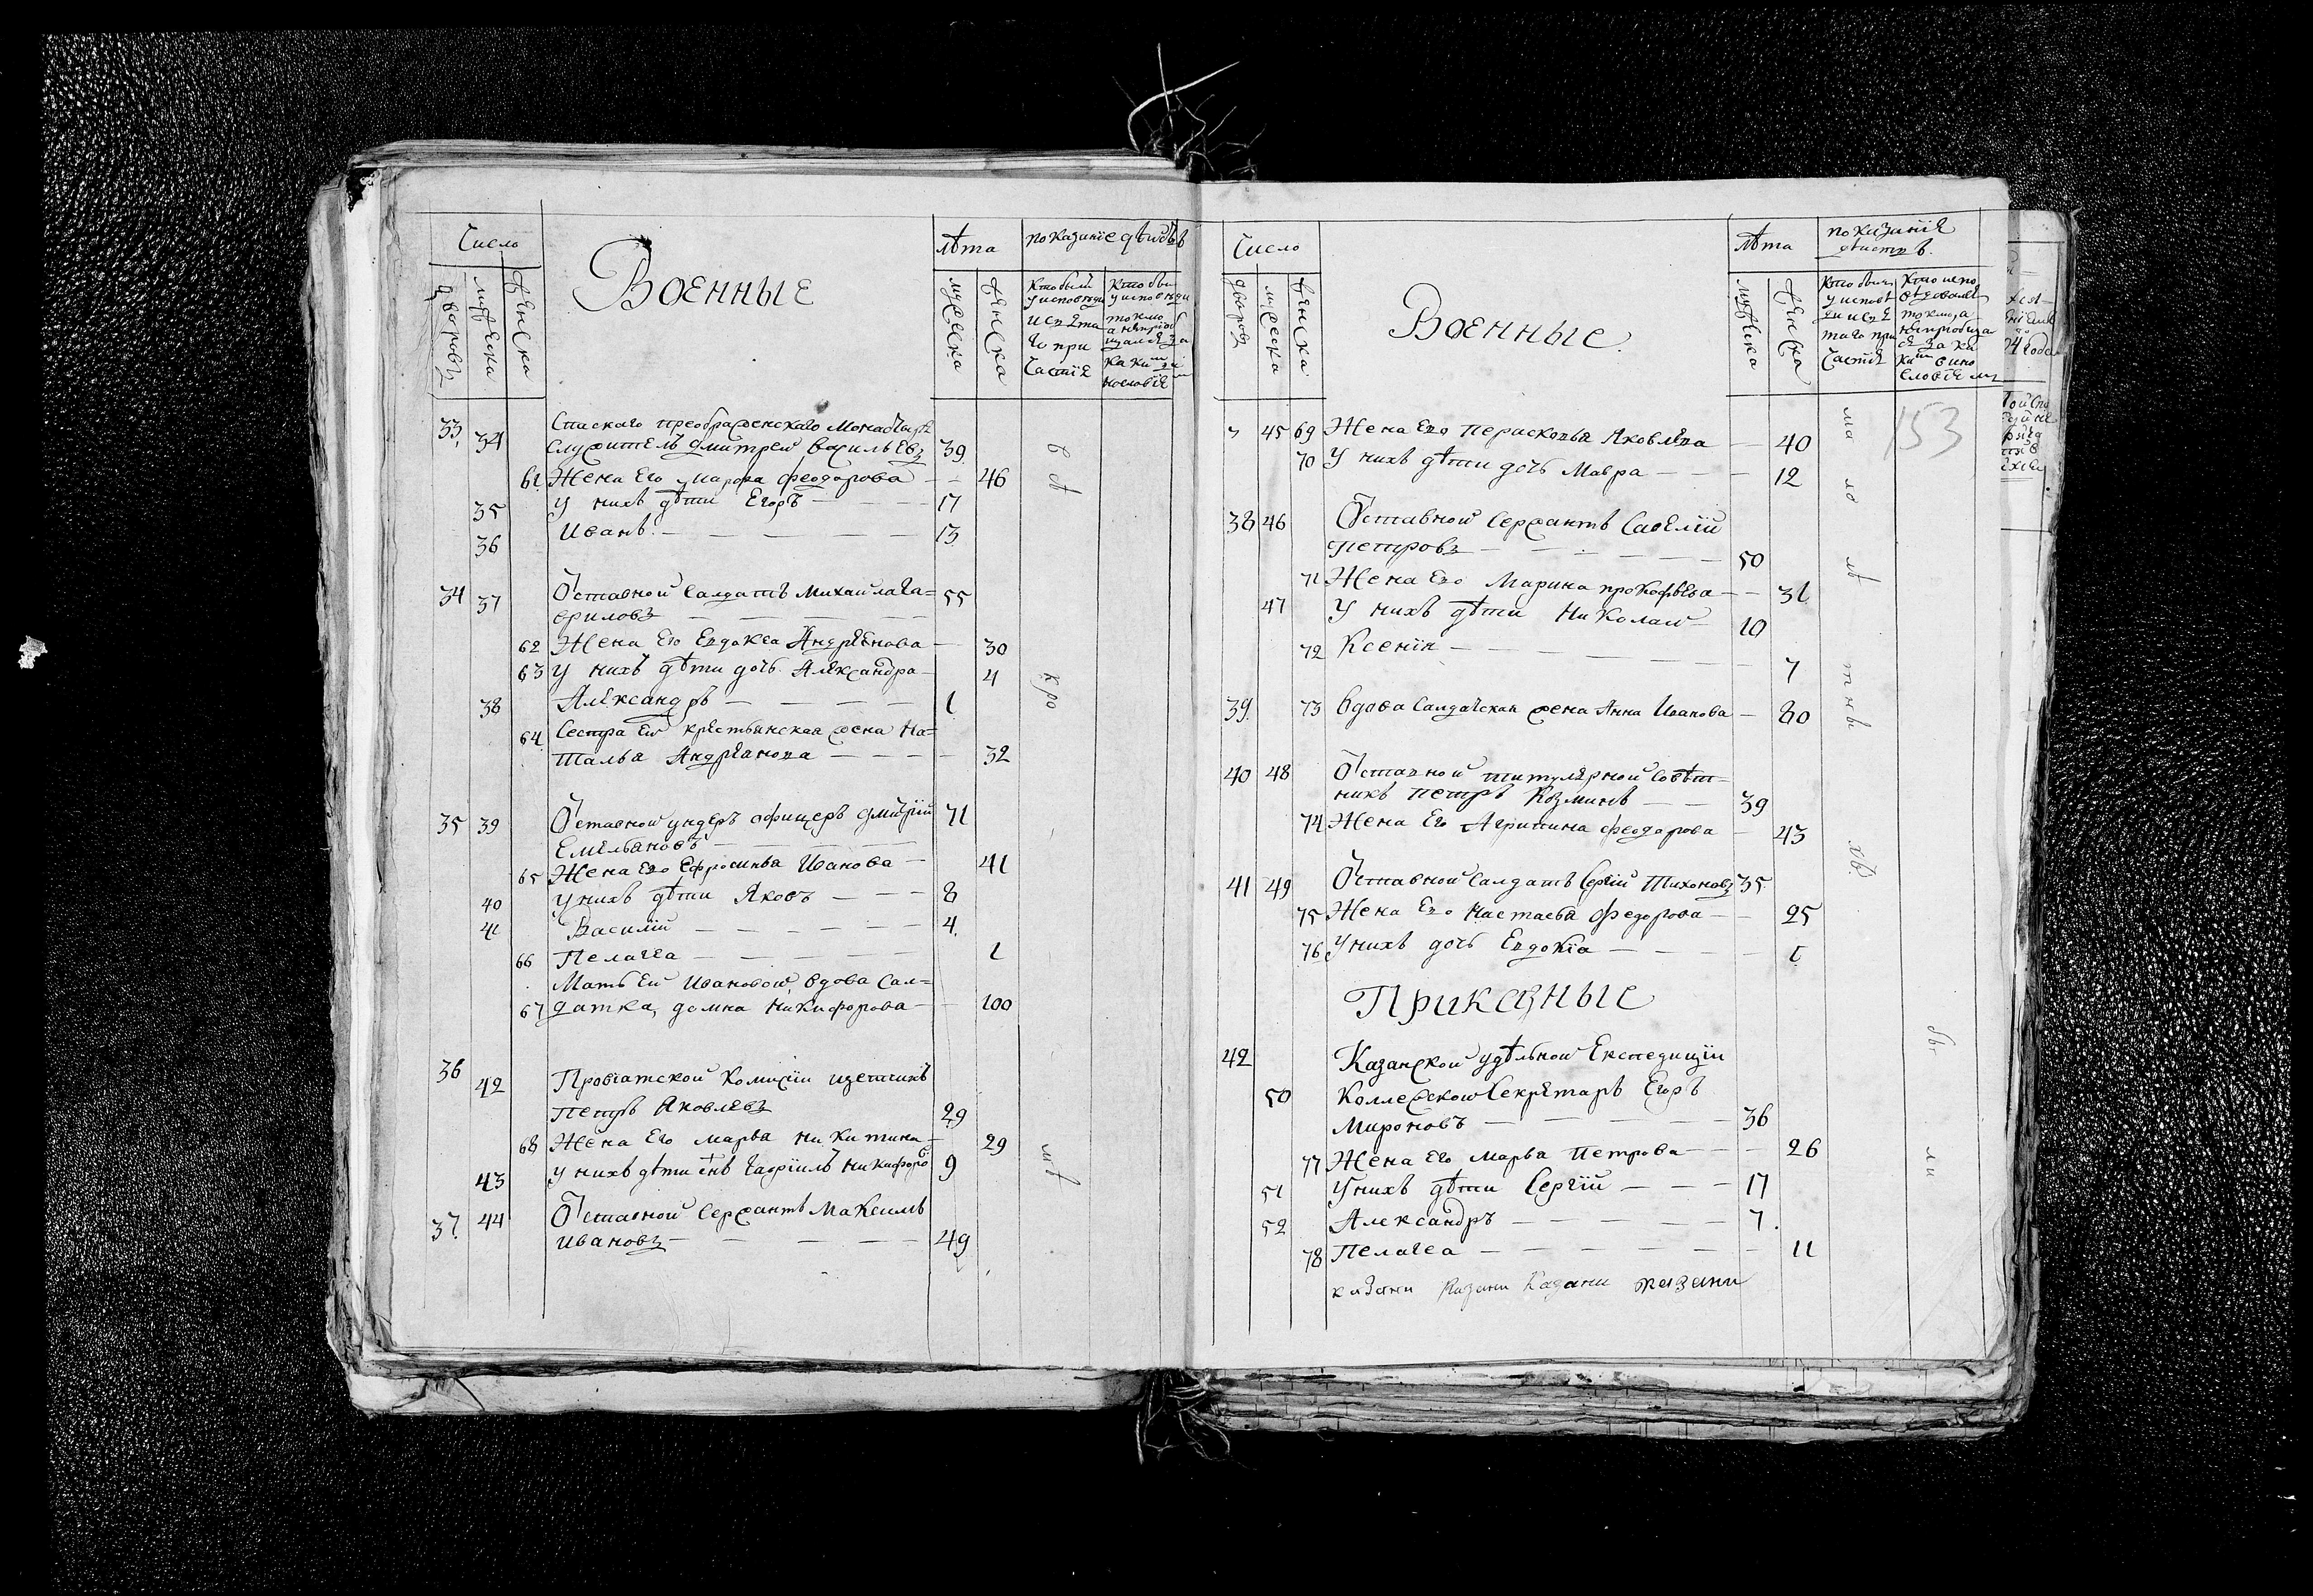 Число
Военные
лѣта
показание
дворовъ
мужеска
женска
мужеска
женска
Кто были
у исповеди
Кто был
у исповеди
токмо
33. 34 Спаскаго преображенскаго Монастыря
служитель Дмитреи Васильевъ 39
61 Жена Его Феодорова — 46
35 у нихъ дѣти Егоръ — 17
36 Иванъ — 13
34 37 Оставной Салдатъ Михаила Га=
вриловъ — 55
62 Жена Его Евдокеа Андреѣнова — 30
63 у нихъ дѣти дочь Александра — 4
38 Александръ — 1
64 Сестра Ей крестьянская жена На=
талья Андреанова — 32
35 39 Оставной ундеръ офицеръ Дмитрій 71
Емельановъ —
65 Жена Его Ефросинья Иванова — 41
40 у нихъ дѣти Яковъ — 8
41 Василій — 4
66 Пелагеа — 1
Мать Ей Ивановой, вдова Сал=
67 датка, домна Никифорова — 100
36 42 Провіатской Комисіи
Петръ Яковлевъ 29
68 Жена Его марья Никитина — 29
43 у нихъ дѣти снъ Гавріилъ 9
37. 44 Оставной Сержантъ Максимъ
Ивановъ — 49
Число
Военные.
лѣта
показаніе
дворовъ
мужеска
женска
мужеска
женска
153
45 69 Жена Его Перасковья Яковлева — 40
70 У нихъ дѣти дочь Мавра — 12
38 46 Оставной Сержантъ Савелій
Петровъ — 50
71 Жена Его Марина прокофьева — 31
47 У нихъ дѣти Николаи — 10
72 Ксеніи — 7
39. 73 Вдова Салдатская жена Анна Иванова — 80
40 48 Оставной титулярной Совѣт=
никъ Петръ Козминъ — 39
74 Жена Его Агрипина Феодорова — 43
41 49 Оставной Салдатъ Сергій Тихоновъ 35
75 Жена Его Настасья Федорова — 25
76 У нихъ дочь Евдокіа — 1
Приказные
42 Казанской удѣльной Експедиціи
50 Коллежской Секретарь Егоръ
Мироновъ — 36
77 Жена Его Марья Петрова — 26
51 У нихъ дѣти Сергій — 17
52 Александръ — 7.
78 Пелагеа — 11
казани Казани Казани казани